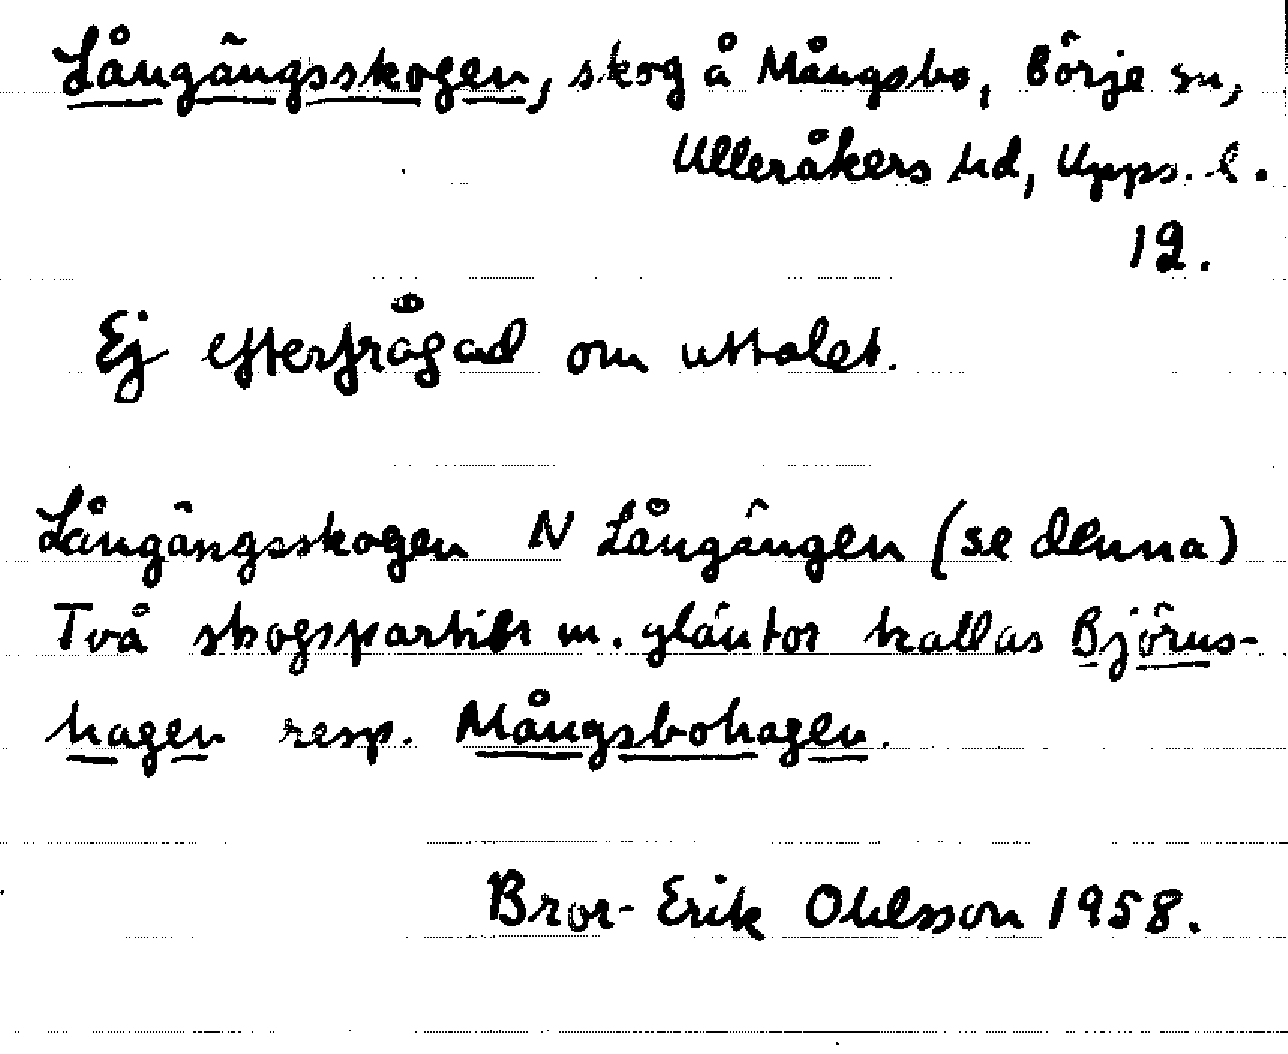 Långängsskogen, skog å Mångsbo, Börje sn,
Ulleråkers hd, Upps. l.
12.
Ej efterfrågad om uttalet.
Långängsskogen N Långängen (se denna)
Två skogspartier m. gläntor kallas Björns-
hagen resp. Mångsbohagen.
Bror-Erik Ohlsson 1958.